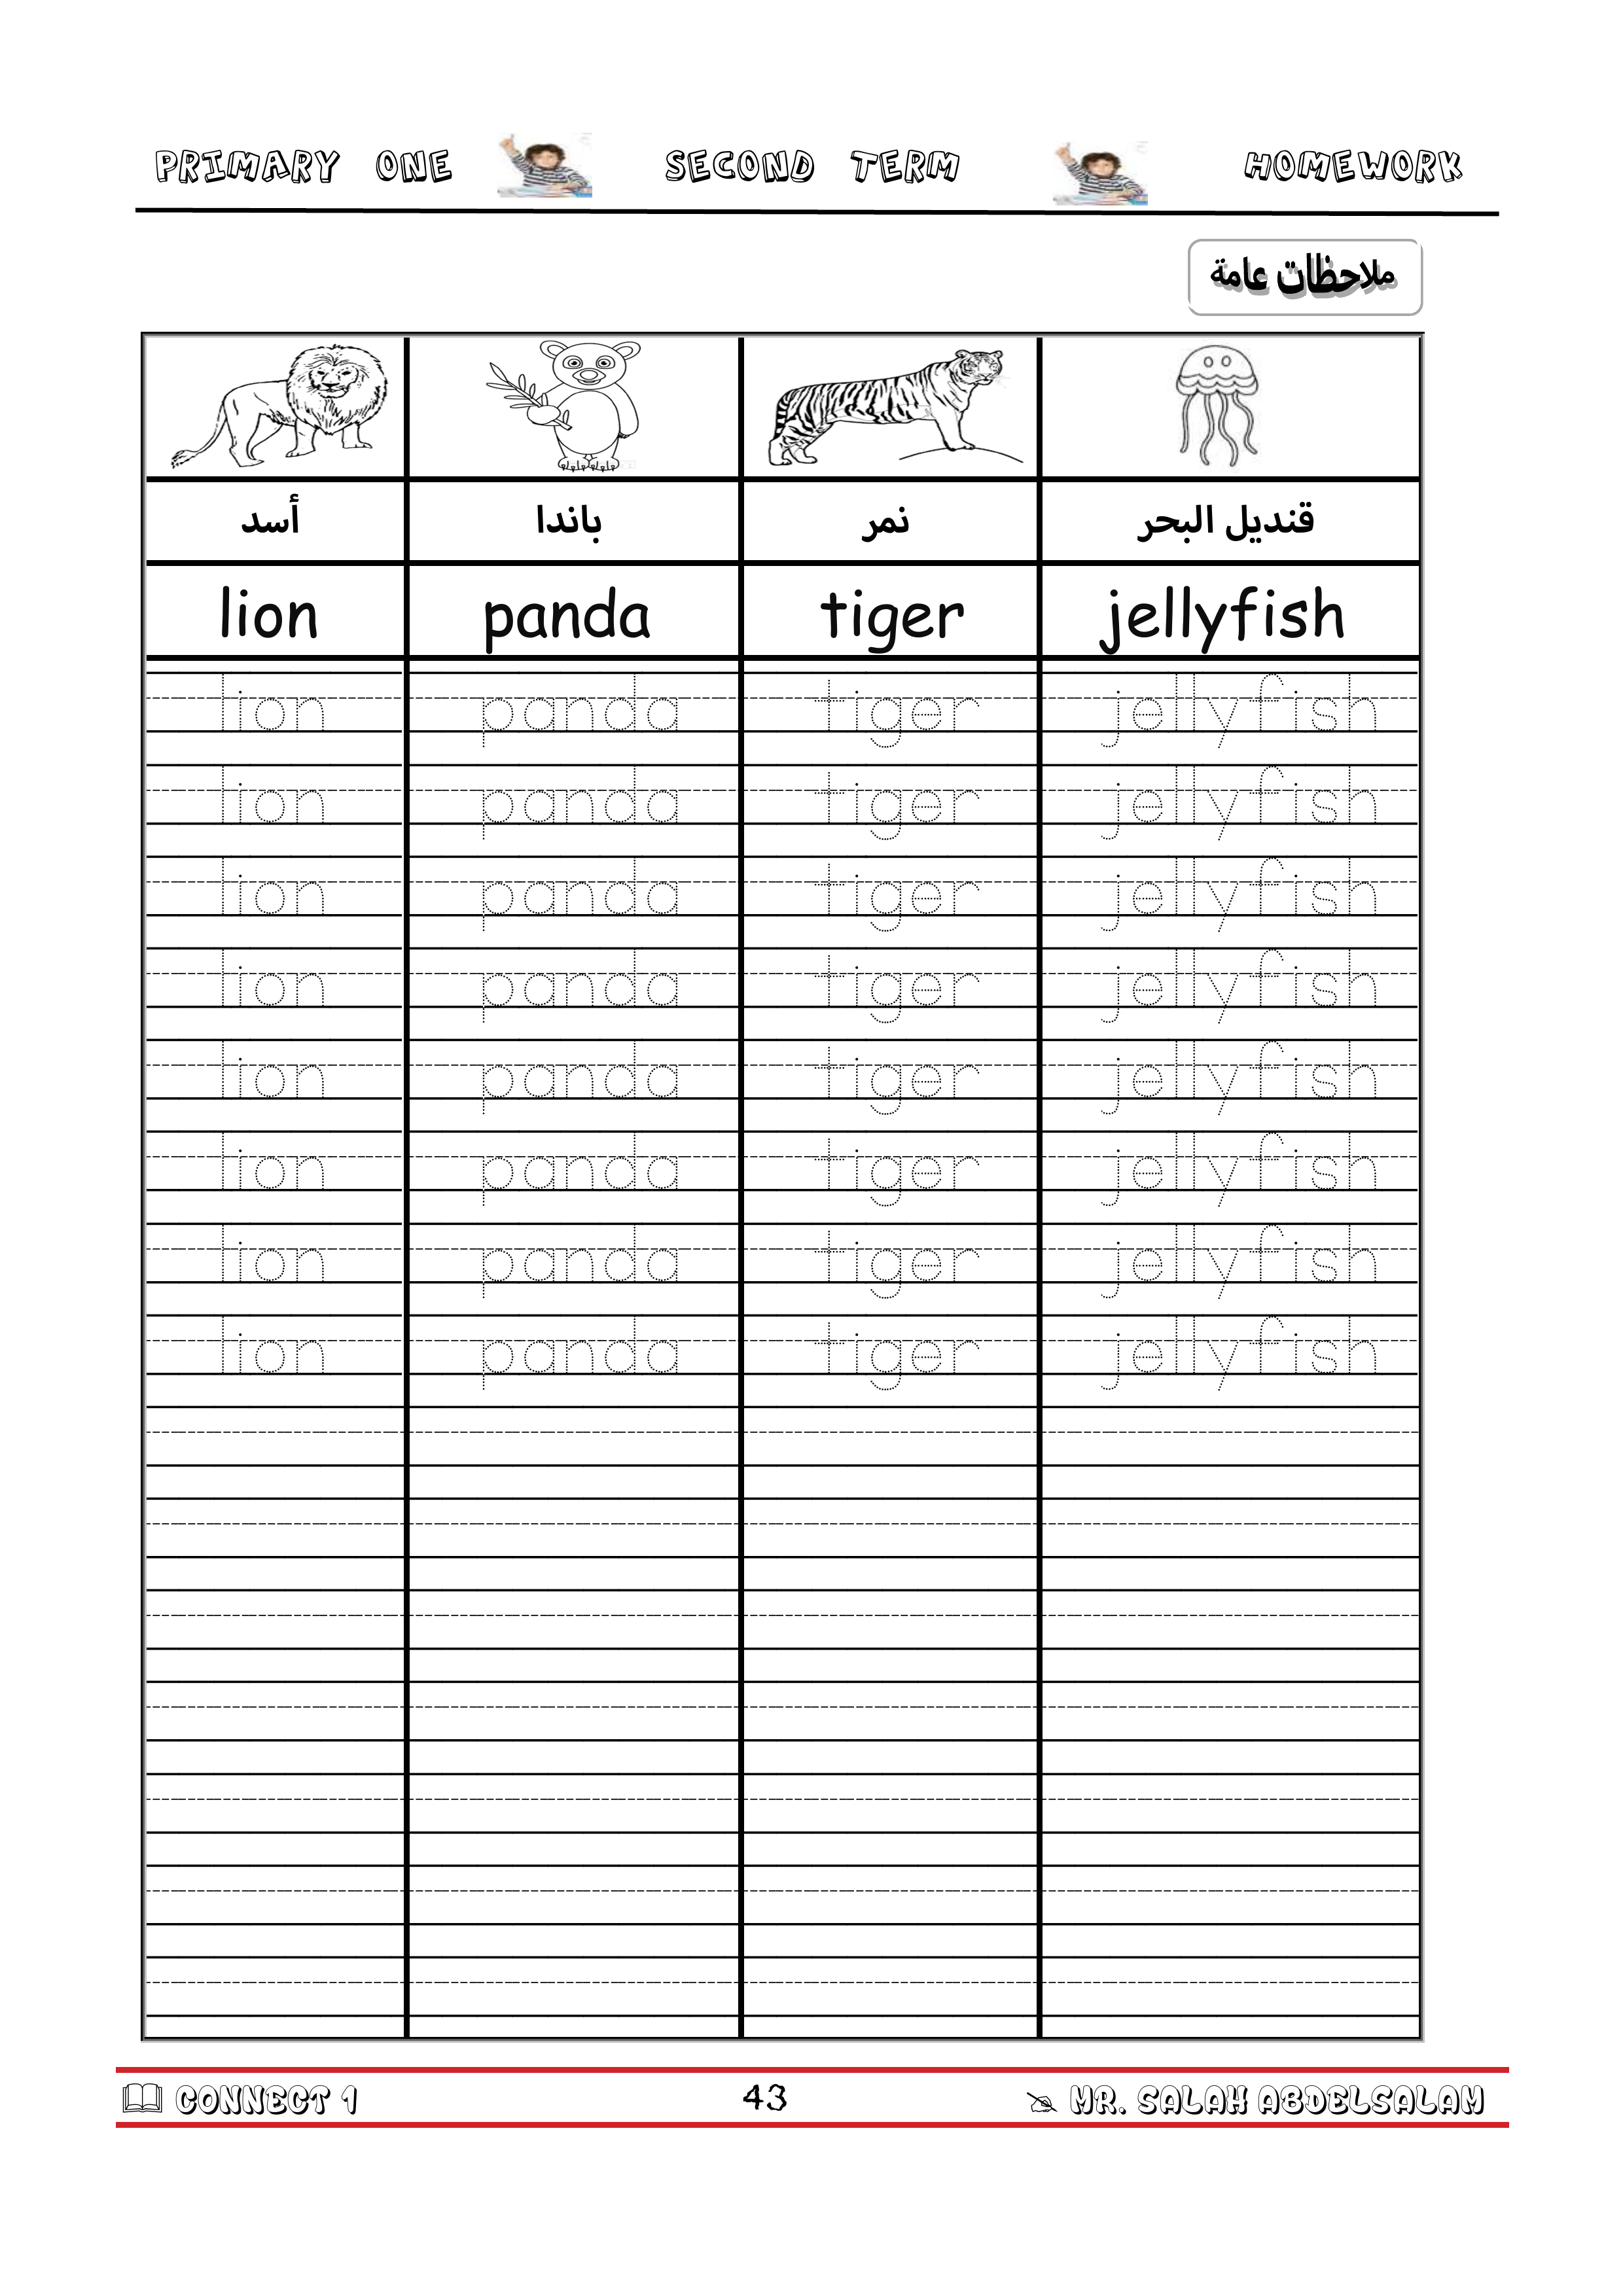 PRIMARY ONE SECOND TERM HOMEWORK
ملاحظات عامة
أسد باندا نمر قنديل البحر
lion panda tiger jellyfish
lion panda tiger jellyfish
lion panda tiger jellyfish
lion panda tiger jellyfish
lion panda tiger jellyfish
lion panda tiger jellyfish
lion panda tiger jellyfish
lion panda tiger jellyfish
lion panda tiger jellyfish
CONNECT 1 43 MR. SALAH ABDELSALAM